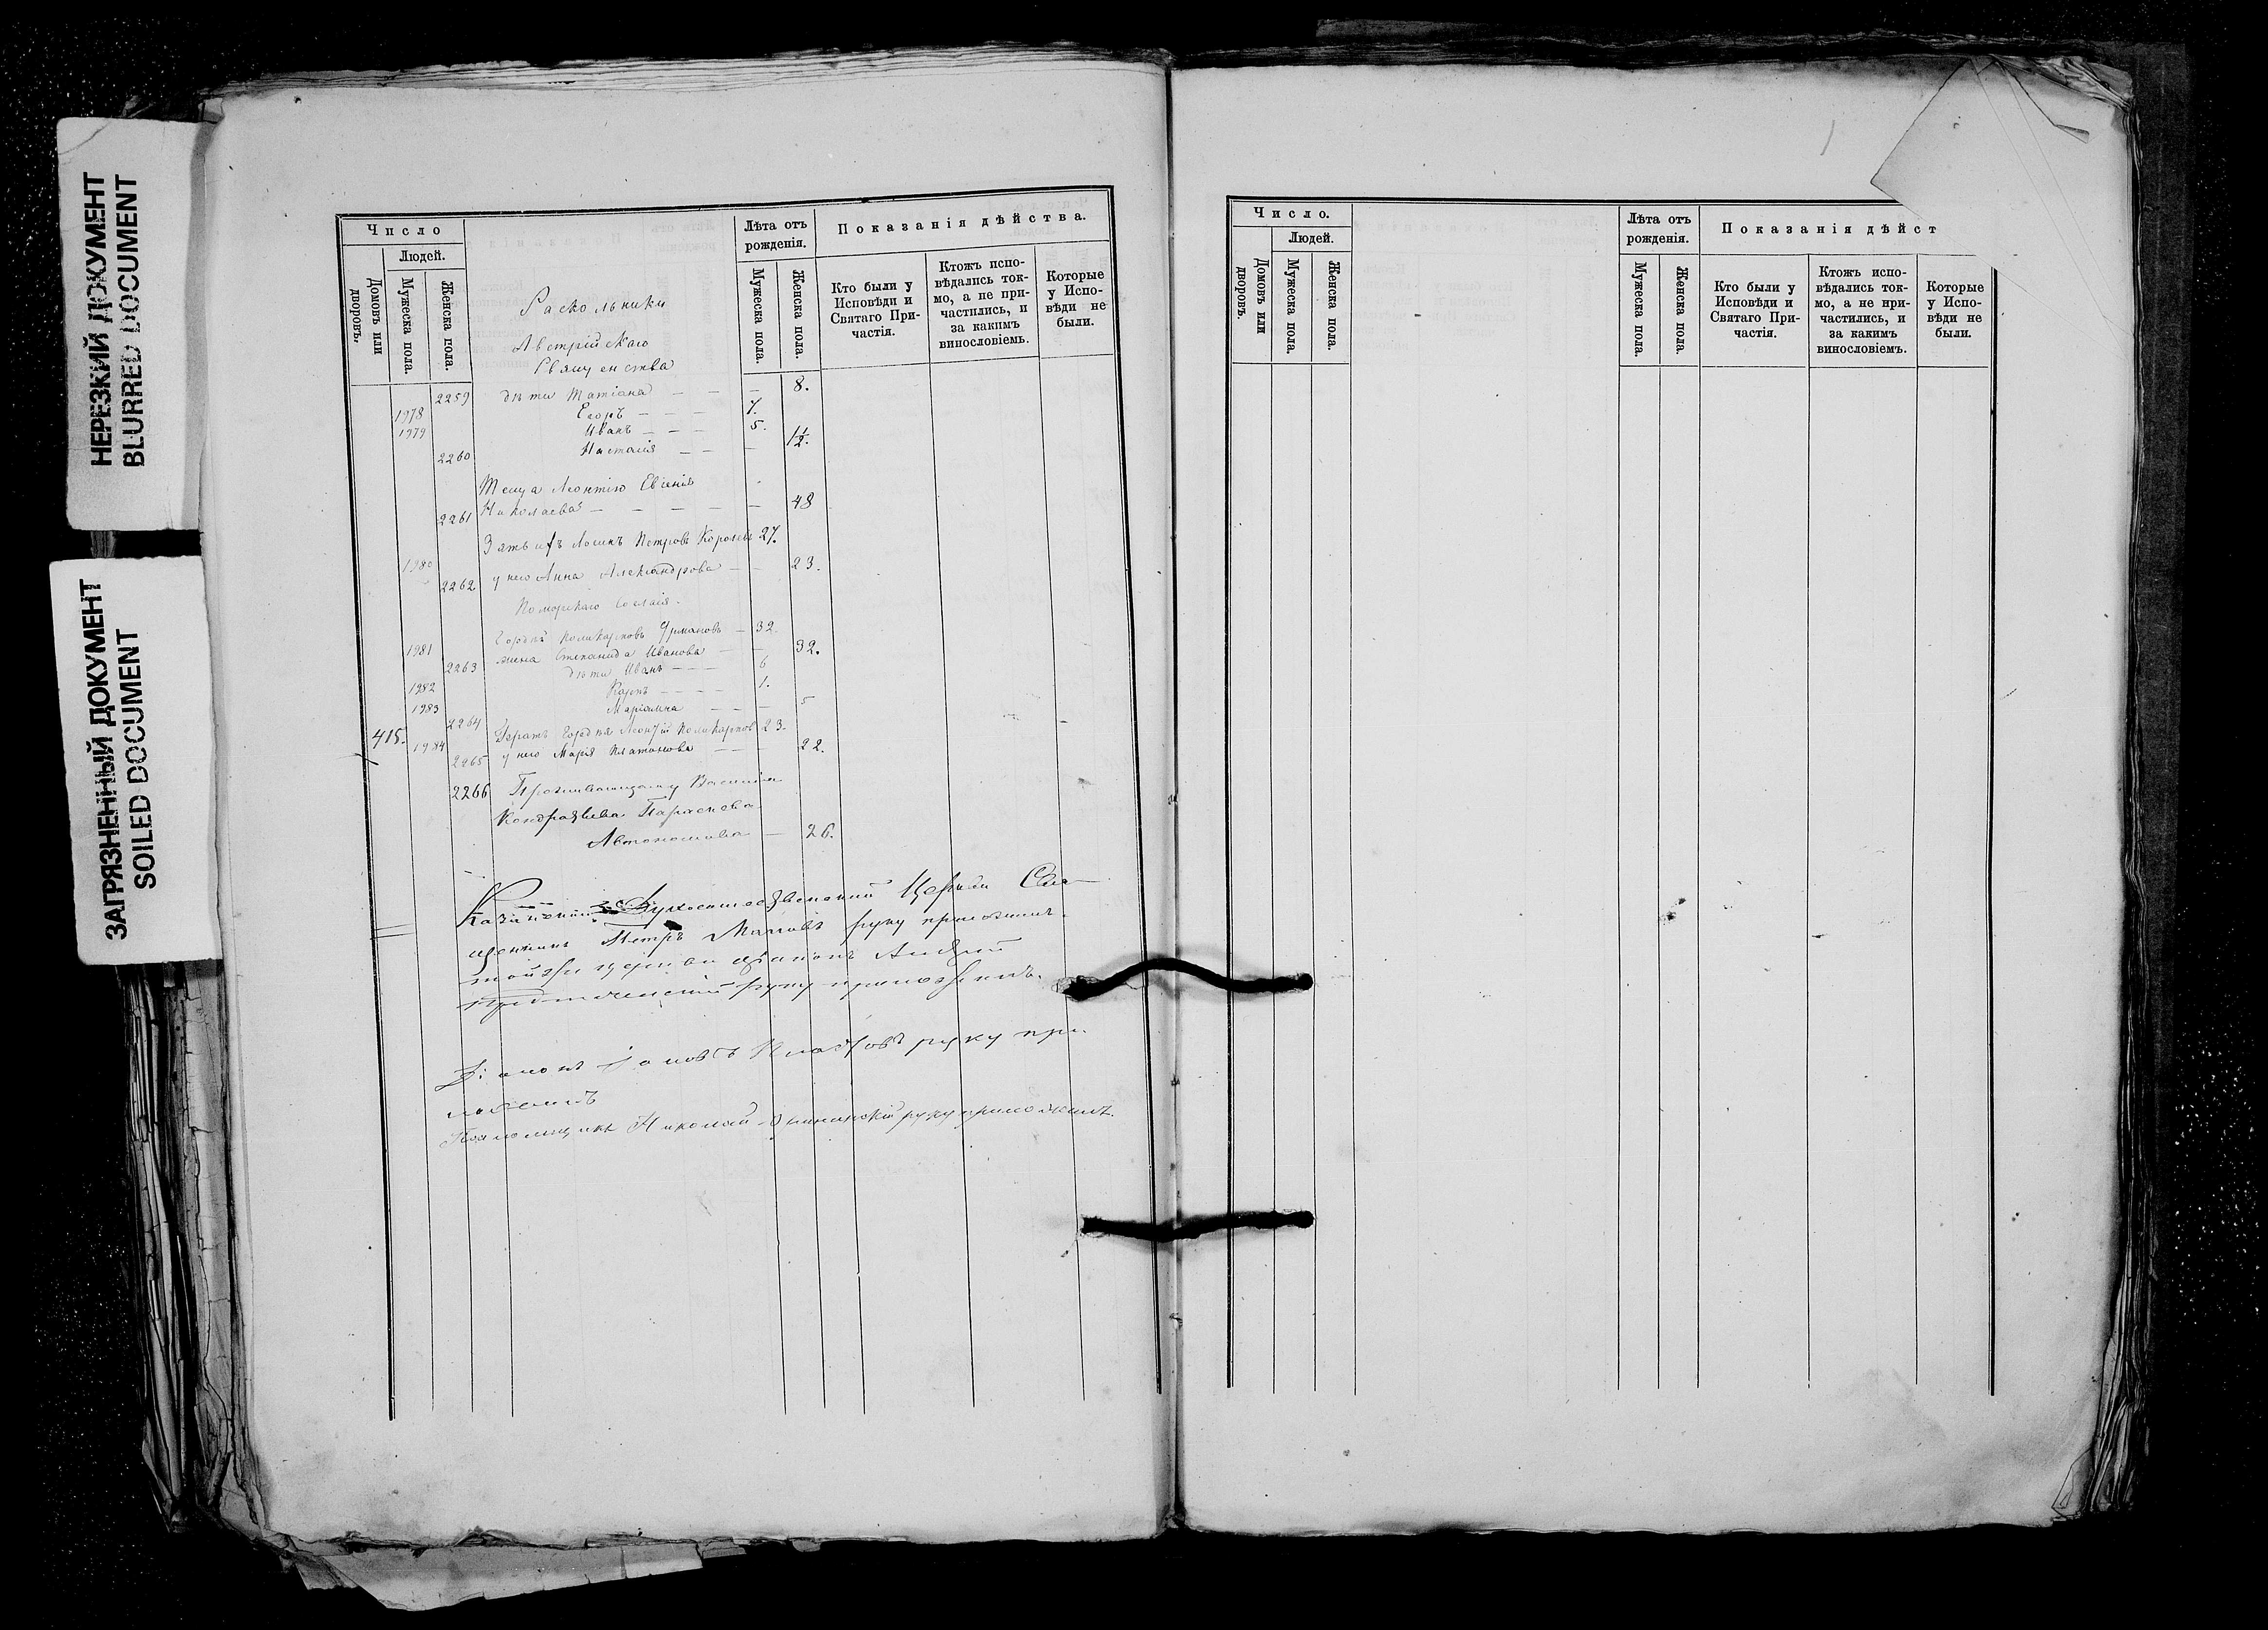 НЕРЕЗКИЙ ДОКУМЕНТ
BLURRED DOCUMENT
ЗАГРЯЗНЕННЫЙ ДОКУМЕНТ
SOILED DOCUMENT
Число
Людей.
Домовъ или дворовъ.
Мужеска пола.
Женска пола.
Раскольники
Австрійскаго
Священства
Лѣта отъ рожденія.
Мужеска пола.
Женска пола.
Показанія дѣйства.
Кто были у Исповѣди и Святаго Причастія.
Ктожъ исповѣдались токмо, а не причастились, и за какимъ винословіемъ.
Которые у Исповѣди не были.
2259 дѣти Татіана — — — 8.
1978 Егоръ — — — 7.
1979 Иванъ — — — 5.
2260 Наталія — — — 1½.
Теща Леонтію Евгенія
2261 Николаева — — — — — 48
1980 Зять ихъ Логинъ Петровъ Королевъ 27.
2262 у него Анна Александрова — — 23.
Поморскаго согласія.
1981 Гордѣй Поликарповъ — 32
2263 жена Степанида Иванова — — 32.
1982 дѣти Иванъ — — — 6
1983 Карпъ — — — — 1.
2264 Маріамна — — — 5
415. 1984 Братъ Гордѣя Леонтій Поликарповъ 23.
2265 у него Марія Платонова — — 22.
2266 Проживающая у Василія
Кондратьева Параскева
Автономова — 26.
Церкви Свя-
щенникъ Петръ руку приложилъ.
той же церкви діаконъ Андрей
руку приложилъ.
Діаконъ Іаковъ руку при-
ложилъ
Псаломщикъ Николай руку приложилъ.
Число.
Людей.
Домовъ или дворовъ.
Мужеска пола.
Женска пола.
Лѣта отъ рожденія.
Мужеска пола.
Женска пола.
Показанія дѣйст
Кто были у Исповѣди и Святаго Причастія.
Ктожъ исповѣдались токмо, а не причастились, и за какимъ винословіемъ.
Которые у Исповѣди не были.